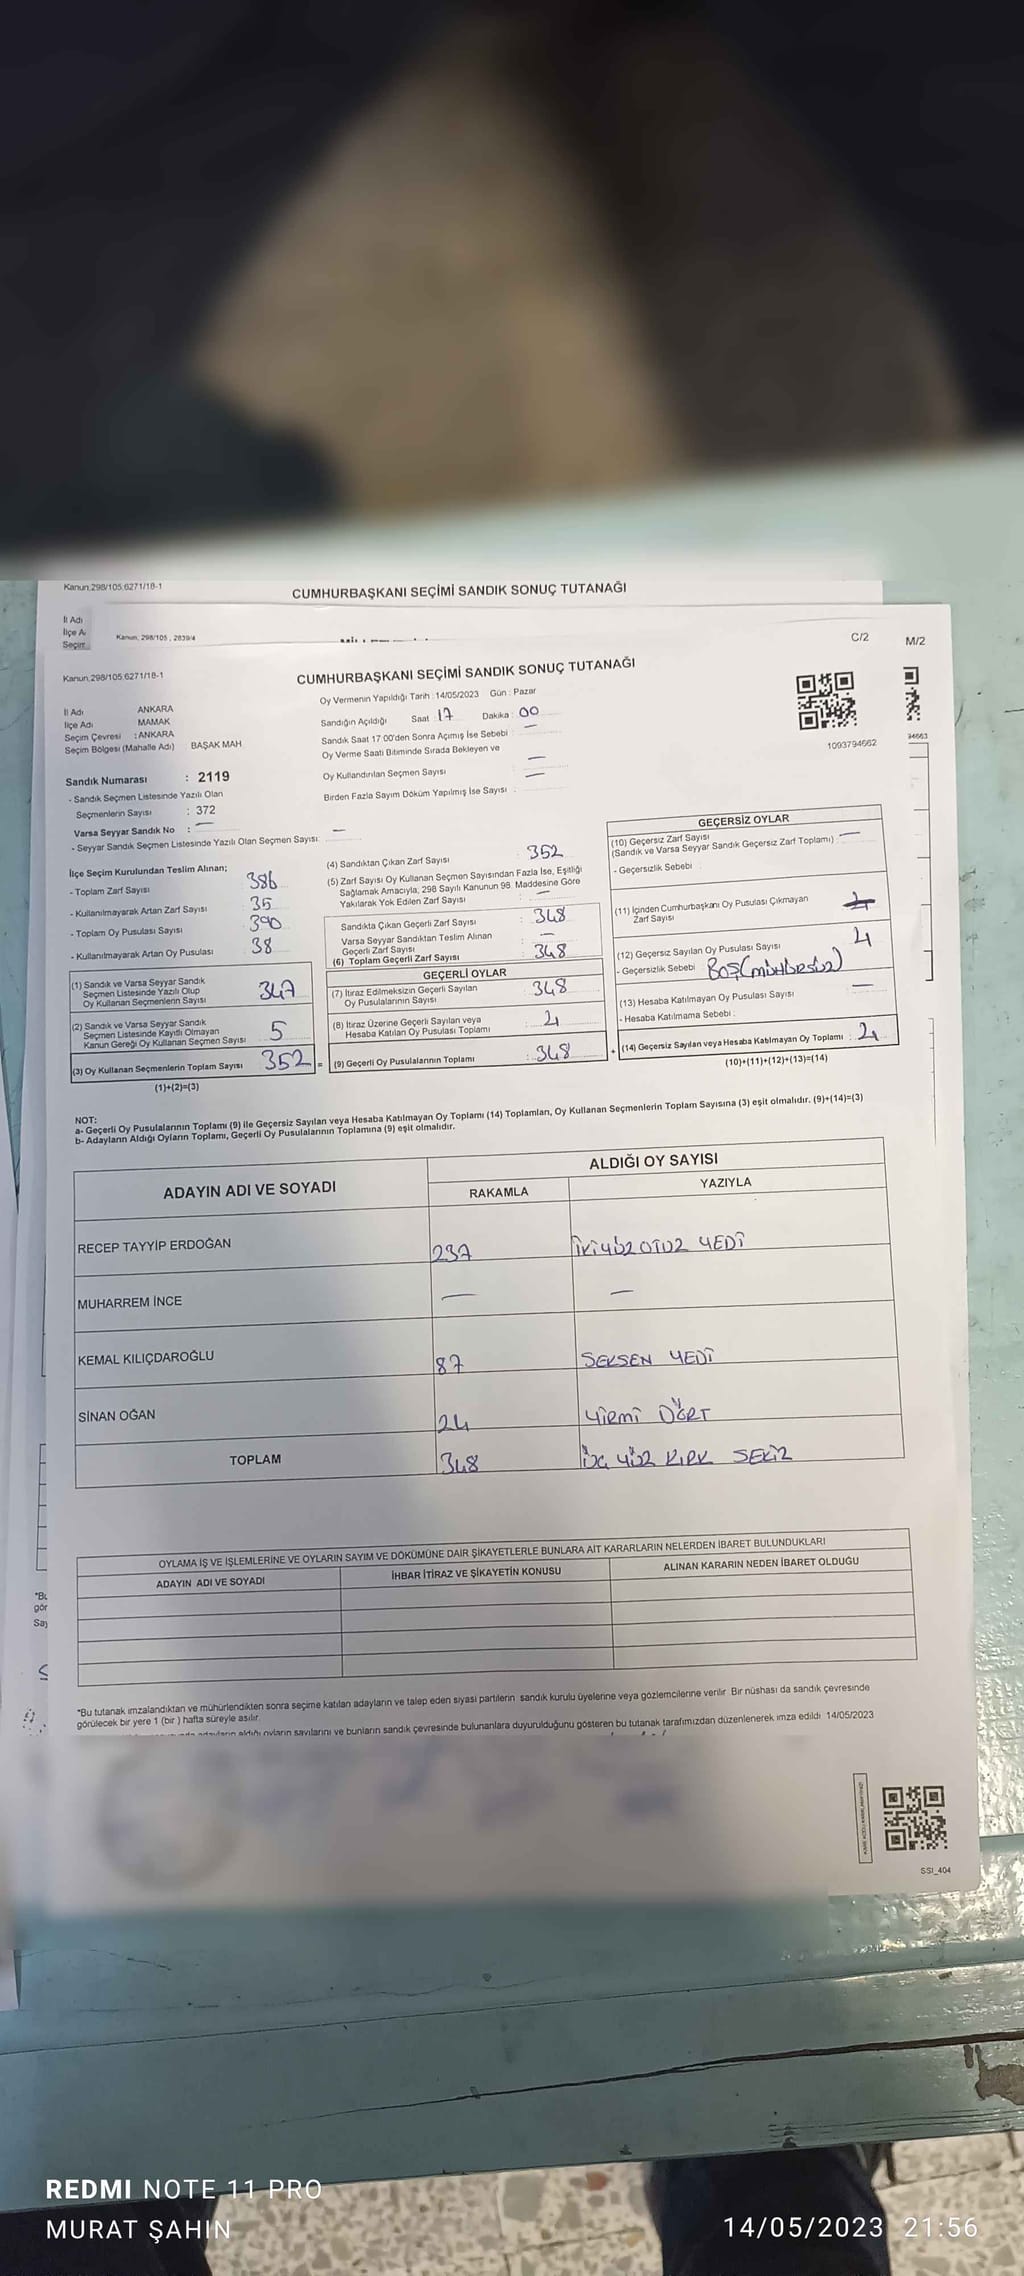 Kanun.298/105.6271/18-1
CUMHURBAŞKANI SEÇİMİ SANDIK SONUÇ TUTANAĞI
İl Adı
İlçe A
Seçim
Kanun, 298/105 , 2839/4
C/2
M/2
Kanun.298/105.6271/18-1
CUMHURBAŞKANI SEÇİMİ SANDIK SONUÇ TUTANAĞI
Oy Vermenin Yapıldığı Tarih : 14/05/2023 Gün : Pazar
İl Adı ANKARA
İlçe Adı MAMAK
Seçim Çevresi : ANKARA
Seçim Bölgesi (Mahalle Adı) BAŞAK MAH
Sandığın Açıldığı Saat 17 Dakika : 00
Sandık Saat 17:00'den Sonra Açımış İse Sebebi : —
Oy Verme Saati Bitiminde Sırada Bekleyen ve
Oy Kullandırılan Seçmen Sayısı : —
Birden Fazla Sayım Döküm Yapılmış İse Sayısı : —
1093794662
94663
Sandık Numarası : 2119
- Sandık Seçmen Listesinde Yazılı Olan
Seçmenlerin Sayısı : 372
Varsa Seyyar Sandık No : —
- Seyyar Sandık Seçmen Listesinde Yazılı Olan Seçmen Sayısı: —
İlçe Seçim Kurulundan Teslim Alınan;
- Toplam Zarf Sayısı 386
- Kullanılmayarak Artan Zarf Sayısı 35
- Toplam Oy Pusulası Sayısı 390
- Kullanılmayarak Artan Oy Pusulası 38
(1) Sandık ve Varsa Seyyar Sandık
Seçmen Listesinde Yazılı Olup
Oy Kullanan Seçmenlerin Sayısı 347
(2) Sandık ve Varsa Seyyar Sandık
Seçmen Listesinde Kayıtlı Olmayan
Kanun Gereği Oy Kullanan Seçmen Sayısı 5
(3) Oy Kullanan Seçmenlerin Toplam Sayısı 352 =
(1)+(2)=(3)
(4) Sandıktan Çıkan Zarf Sayısı : 352
(5) Zarf Sayısı Oy Kullanan Seçmen Sayısından Fazla İse, Eşitliği
Sağlamak Amacıyla, 298 Sayılı Kanunun 98. Maddesine Göre
Yakılarak Yok Edilen Zarf Sayısı : —
Sandıkta Çıkan Geçerli Zarf Sayısı : 348
Varsa Seyyar Sandıktan Teslim Alınan
Geçerli Zarf Sayısı : —
(6) Toplam Geçerli Zarf Sayısı : 348
GEÇERLİ OYLAR
(7) İtiraz Edilmeksizin Geçerli Sayılan
Oy Pusulalarının Sayısı : 348
(8) İtiraz Üzerine Geçerli Sayılan veya
Hesaba Katılan Oy Pusulası Toplamı : 4
(9) Geçerli Oy Pusulalarının Toplamı : 348 +
GEÇERSİZ OYLAR
(10) Geçersiz Zarf Sayısı
(Sandık ve Varsa Seyyar Sandık Geçersiz Zarf Toplamı) : —
- Geçersizlik Sebebi :
(11) İçinden Cumhurbaşkanı Oy Pusulası Çıkmayan
Zarf Sayısı
(12) Geçersiz Sayılan Oy Pusulası Sayısı 4
- Geçersizlik Sebebi : BOŞ(MÜHÜRSÜZ)
(13) Hesaba Katılmayan Oy Pusulası Sayısı —
- Hesaba Katılmama Sebebi :
(14) Geçersiz Sayılan veya Hesaba Katılmayan Oy Toplamı : 4
(10)+(11)+(12)+(13)=(14)
NOT:
a- Geçerli Oy Pusulalarının Toplamı (9) ile Geçersiz Sayılan veya Hesaba Katılmayan Oy Toplamı (14) Toplamları, Oy Kullanan Seçmenlerin Toplam Sayısına (3) eşit olmalıdır. (9)+(14)=(3)
b- Adayların Aldığı Oyların Toplamı, Geçerli Oy Pusulalarının Toplamına (9) eşit olmalıdır.
ADAYIN ADI VE SOYADI ALDIĞI OY SAYISI
RAKAMLA YAZIYLA
RECEP TAYYİP ERDOĞAN 237 İKİYÜZ OTUZ YEDİ
MUHARREM İNCE — —
KEMAL KILIÇDAROĞLU 87 SEKSEN YEDİ
SİNAN OĞAN 24 YİRMİ DÖRT
TOPLAM 348 ÜÇ YÜZ KIRK SEKİZ
OYLAMA İŞ VE İŞLEMLERİNE VE OYLARIN SAYIM VE DÖKÜMÜNE DAİR ŞİKAYETLERLE BUNLARA AİT KARARLARIN NELERDEN İBARET BULUNDUKLARI
ADAYIN ADI VE SOYADI İHBAR İTİRAZ VE ŞİKAYETİN KONUSU ALINAN KARARIN NEDEN İBARET OLDUĞU
*Bu
gör
Say
*Bu tutanak imzalandıktan ve mühürlendikten sonra seçime katılan adayların ve talep eden siyasi partilerin sandık kurulu üyelerine veya gözlemcilerine verilir. Bir nüshası da sandık çevresinde
görülecek bir yere 1 (bir ) hafta süreyle asılır.
adayların aldığı oyların sayılarını ve bunların sandık çevresinde bulunanlara duyurulduğunu gösteren bu tutanak tarafımızdan düzenlenerek imza edildi 14/05/2023
SSI_404
REDMI NOTE 11 PRO
MURAT ŞAHIN
14/05/2023 21:56